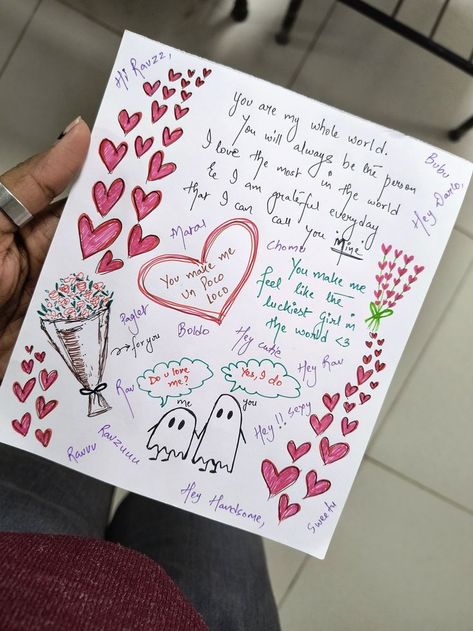 Hi Ravzz,
You are my whole world.
You will always be the person
I love the most in the world
& I am grateful everyday
that I can call you Mine
Bubu
Hey Darlo,
Maral
Chomu
You make me
Un Poco
loco
You make me
feel like the
luckiest girl in
the world <3
Paglet
for you
Boldo
Hey cutie
Hey Rav
Rav
Do u love
me?
Yes, I do
me
you
Hey!! sexy
Ravuu
Ravzuuu
Hey Handsome,
Sweetu